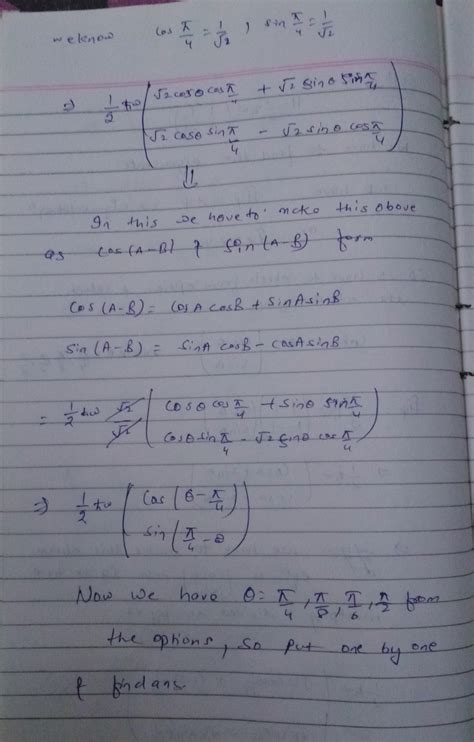 we know cos π/4 = 1/√2 , sin π/4 = 1/√2
⇒ 1/2 ħω ( √2 cosθ cos π/4 + √2 sinθ sin π/4
√2 cosθ sin π/4 - √2 sinθ cos π/4 )
⇓
In this we have to make this above
as cos(A-B) & sin(A-B) form
cos(A-B) = cosA cosB + sinA sinB
sin(A-B) = sinA cosB - cosA sinB
= 1/2 ħω √2/√2 ( cosθ cos π/4 + sinθ sin π/4
cosθ sin π/4 - √2 sinθ cos π/4 )
⇒ 1/2 ħω ( cos(θ - π/4)
sin(π/4 - θ) )
Now we have θ = π/4, π/8, π/6, π/2 from
the options, so put one by one
& find ans.